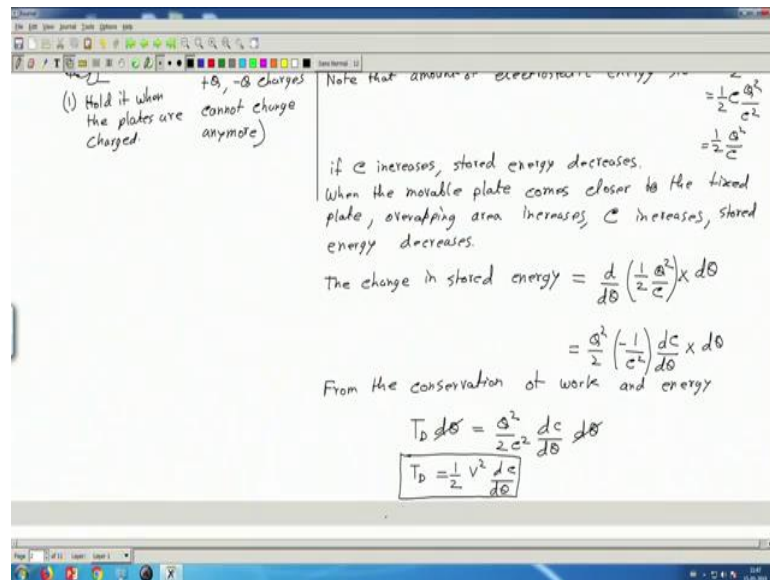 File Edit View Journal Tools Options Help
Sans Normal 12
(1) Hold it when
the plates are
charged.
+Q, -Q charges
cannot change
anymore)
Note that amount of electrostatic energy
= 1/2 C Q²/C²
= 1/2 Q²/C
if C increases, stored energy decreases.
When the movable plate comes closer to the fixed
plate, overapping area increases, C increases, stored
energy decreases.
The change in stored energy = d/dθ (1/2 Q²/C) × dθ
= Q²/2 (-1/C²) dC/dθ × dθ
From the conservation of work and energy
T_D dθ = Q²/2C² dC/dθ dθ
T_D = 1/2 V² dC/dθ
Page 2 of 11 Layer: Layer 1